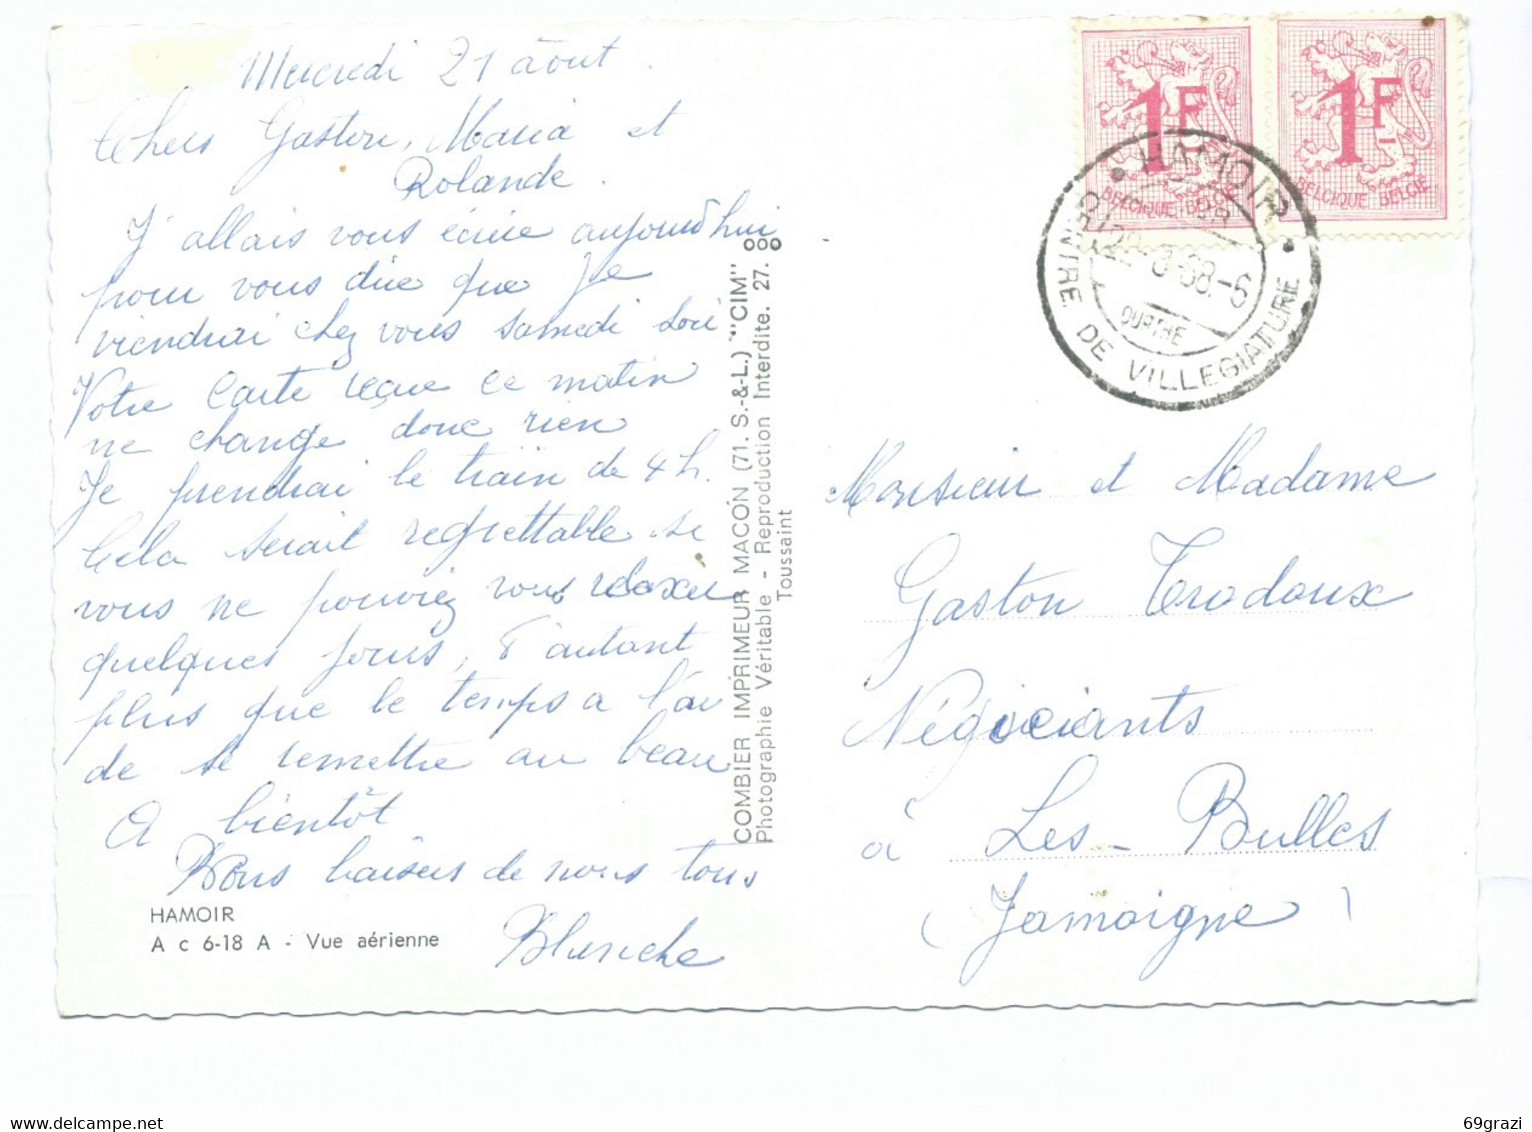 Mercredi 21 août.
Chers Gaston, Maria et
Rolande.
J'allais vous écrire aujourd'hui
pour vous dire que je
viendrai chez vous samedi soir
Votre carte reçue ce matin
ne change donc rien
Je prendrai le train de 4 h.
Cela serait regrettable si
vous ne pouviez vous relaxer
quelques jours, d'autant
plus que le temps a l'air
de se remettre au beau
A bientôt
Bons baisers de nous tous
Blanche
HAMOIR
A c 6-18 A - Vue aérienne
COMBIER IMPRIMEUR MACON (71. S.-&-L.) "CIM"
Photographie Véritable - Reproduction Interdite. 27.
Toussaint
1F
BELGIQUE BELGIË
1F
BELGIQUE BELGIË
HAMOIR
8-68.-6
OURTHE
CENTRE DE VILLEGIATURE
Monsieur et Madame
Gaston Trodoux
Négociants
à Les-Bulles
(Jamoigne)
69grazi